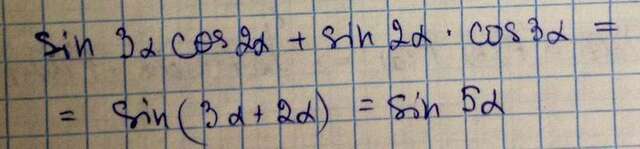 sin 3α cos 2α + sin 2α · cos 3α =
= sin(3α + 2α) = sin 5α